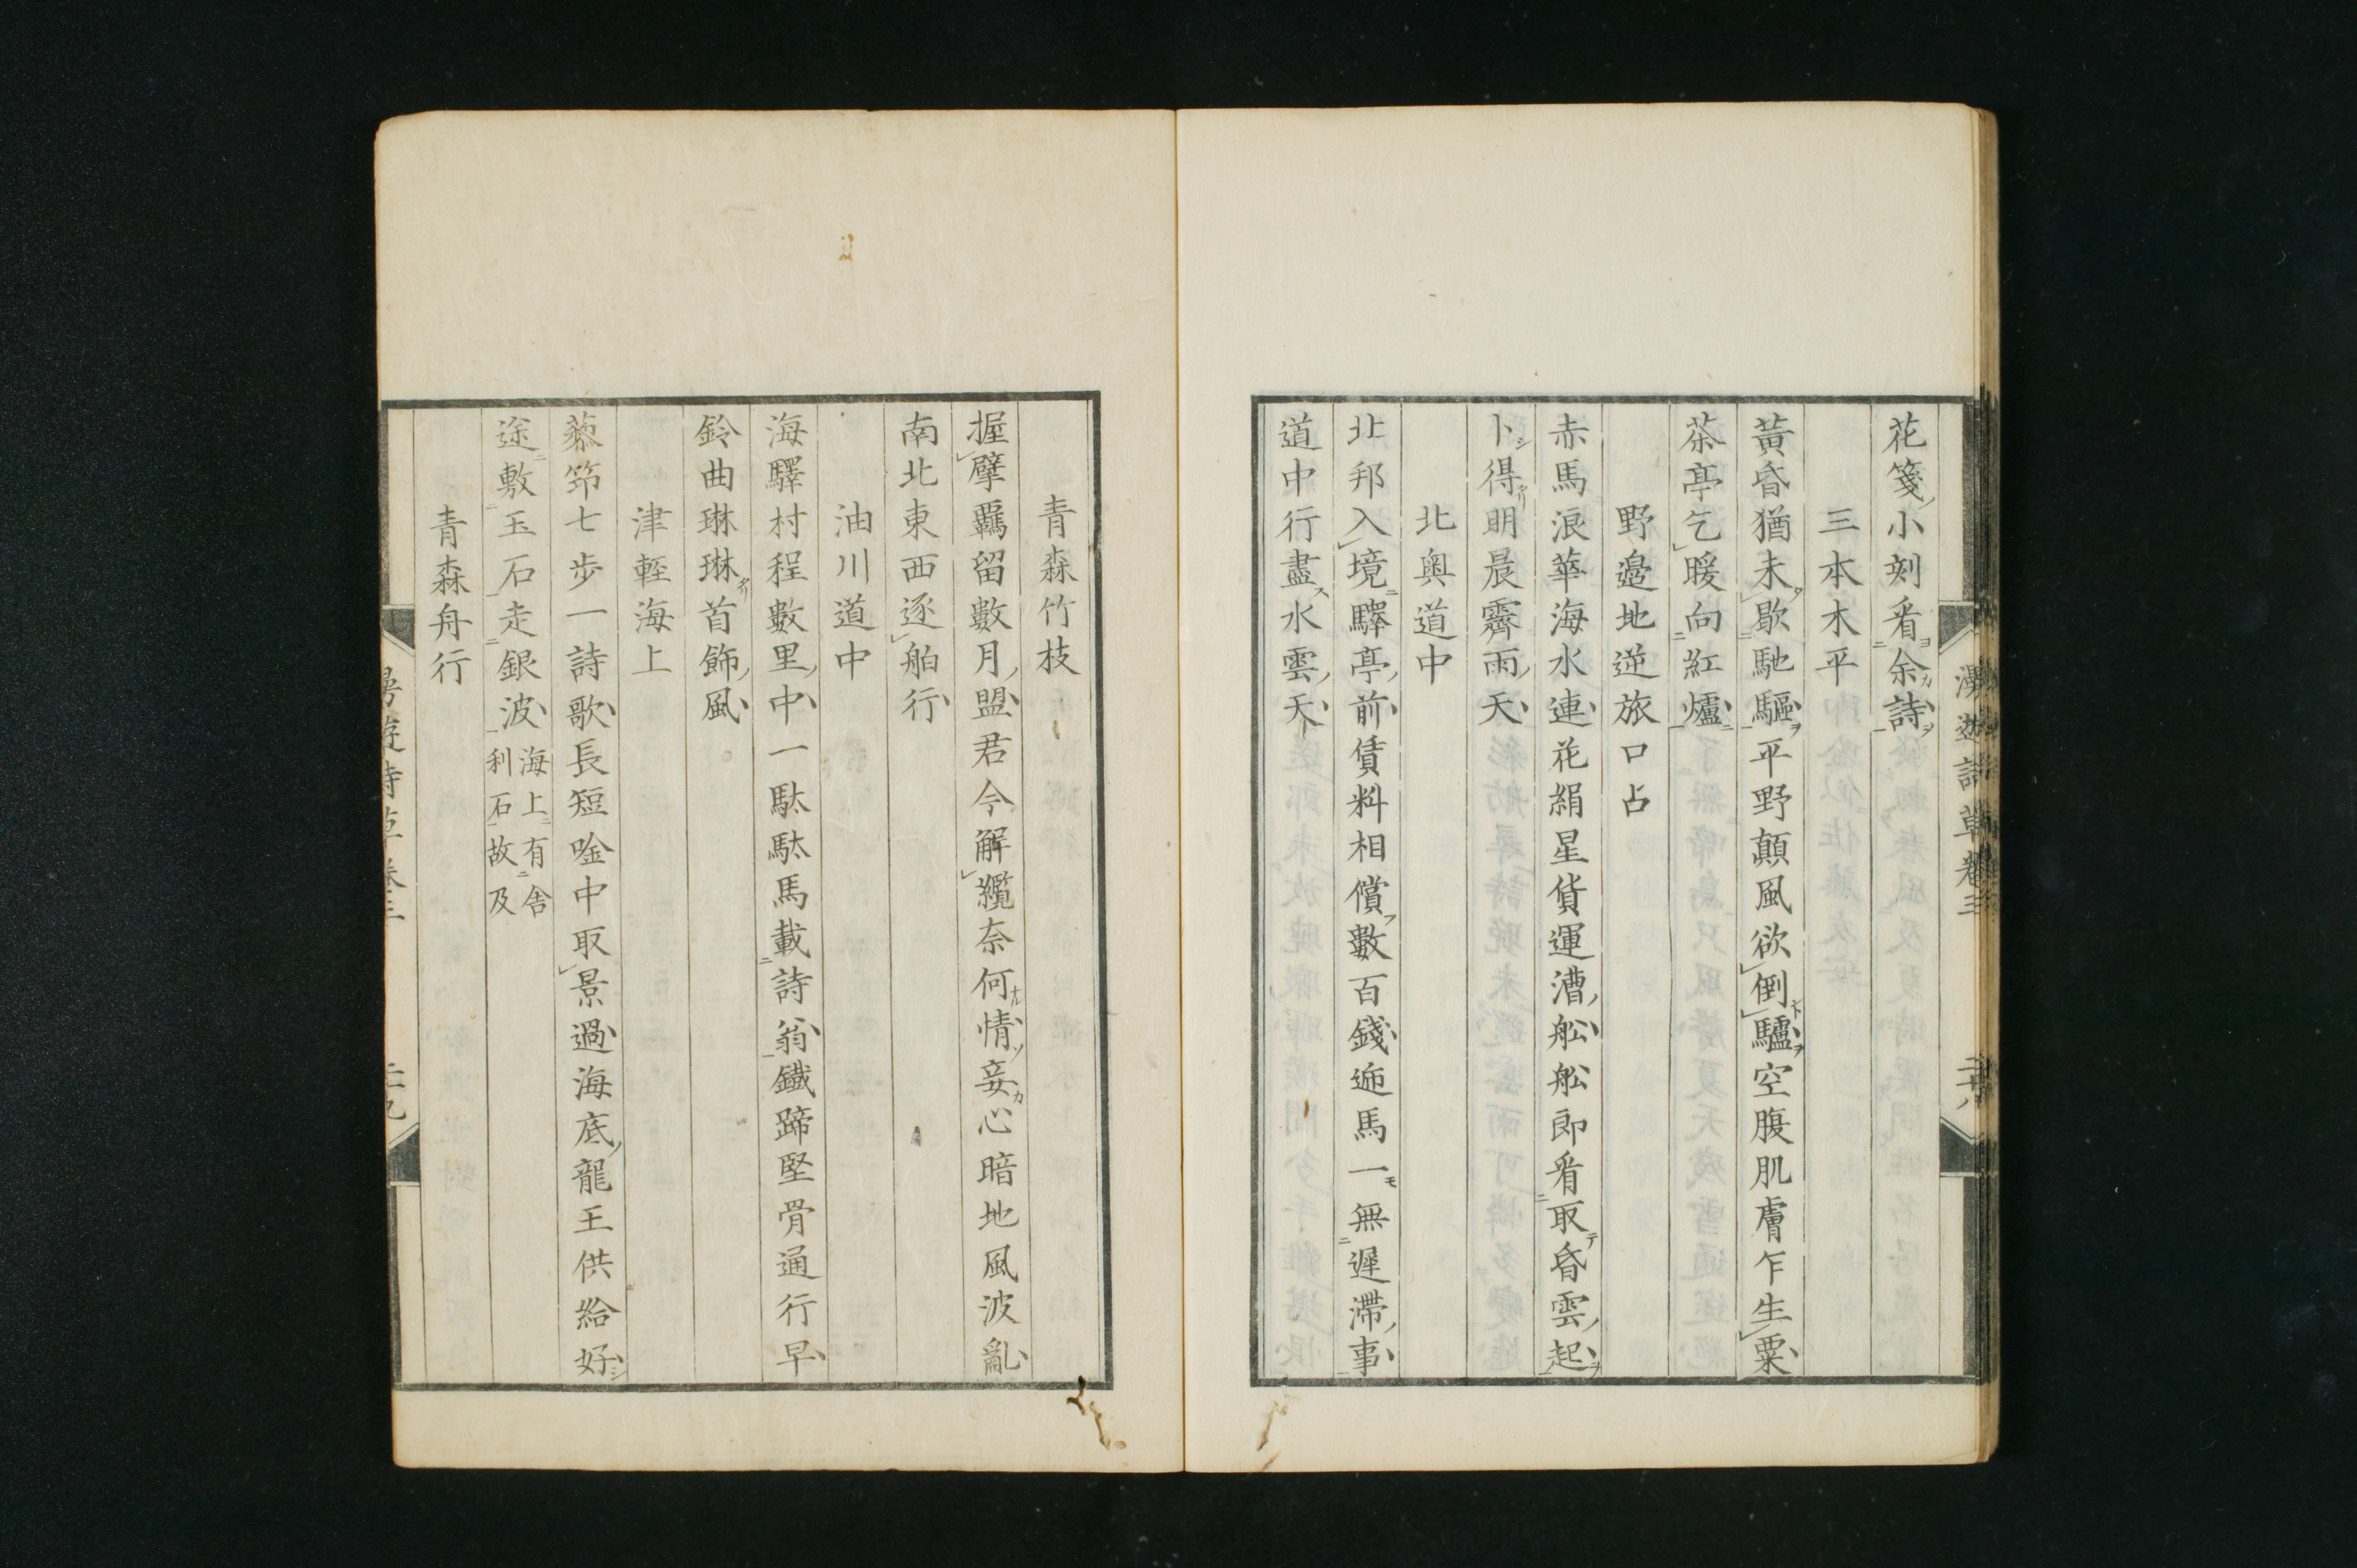 花箋小刻看余詩
三本木平
黃昏猶未歇馳驅平野顛風欲倒驢空腹肌膚乍生粟
茶亭乞暖向紅爐
野邉地逆旅口占
赤馬浪華海水連花絹星貨運漕舩舩郎看取昏雲起
卜得明晨霽雨天
北奧道中
北邦入境驛亭前賃料相償數百錢逓馬一無遲滯事
道中行盡水雲天
漫遊詩草卷三
二十八
青森竹枝
握擘羈留數月盟君今解纜奈何情妾心暗地風波亂
南北東西逐舶行
油川道中
海驛村程數里中一駄駄馬載詩翁鐵蹄堅骨通行早
鈴曲琳琳首飾風
津輕海上
藜笻七步一詩歌長短唫中取景過海底龍王供給好
途敷玉石走銀波
海上有舎
利石故及
青森舟行
漫遊詩草卷三
二十九